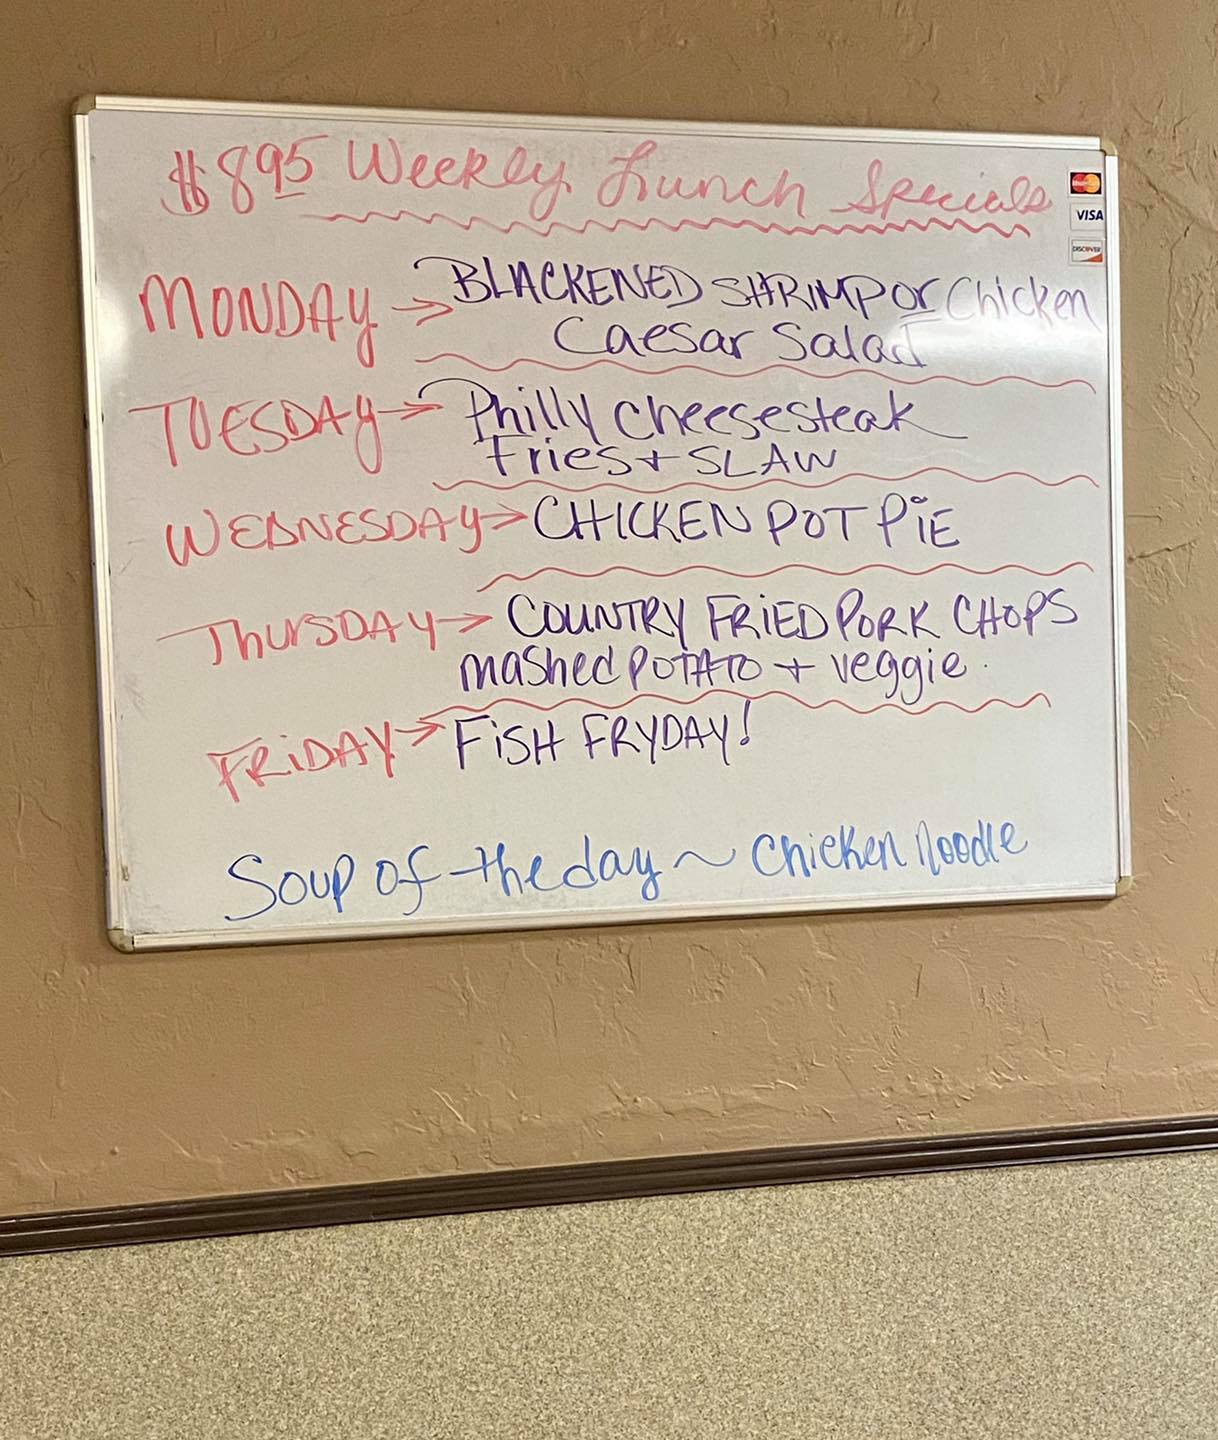 $8.95 Weekly Lunch Specials
MONDAY → BLACKENED SHRIMP or Chicken
Caesar Salad
TUESDAY → Philly Cheesesteak
Fries + SLAW
WEDNESDAY → CHICKEN POT PiE
THURSDAY → COUNTRY FRiED PORK CHOPS
mashed POTATO + veggie
FRiDAY → FiSH FRYDAY!
Soup of the day ~ Chicken Noodle
MasterCard
VISA
DISCOVER